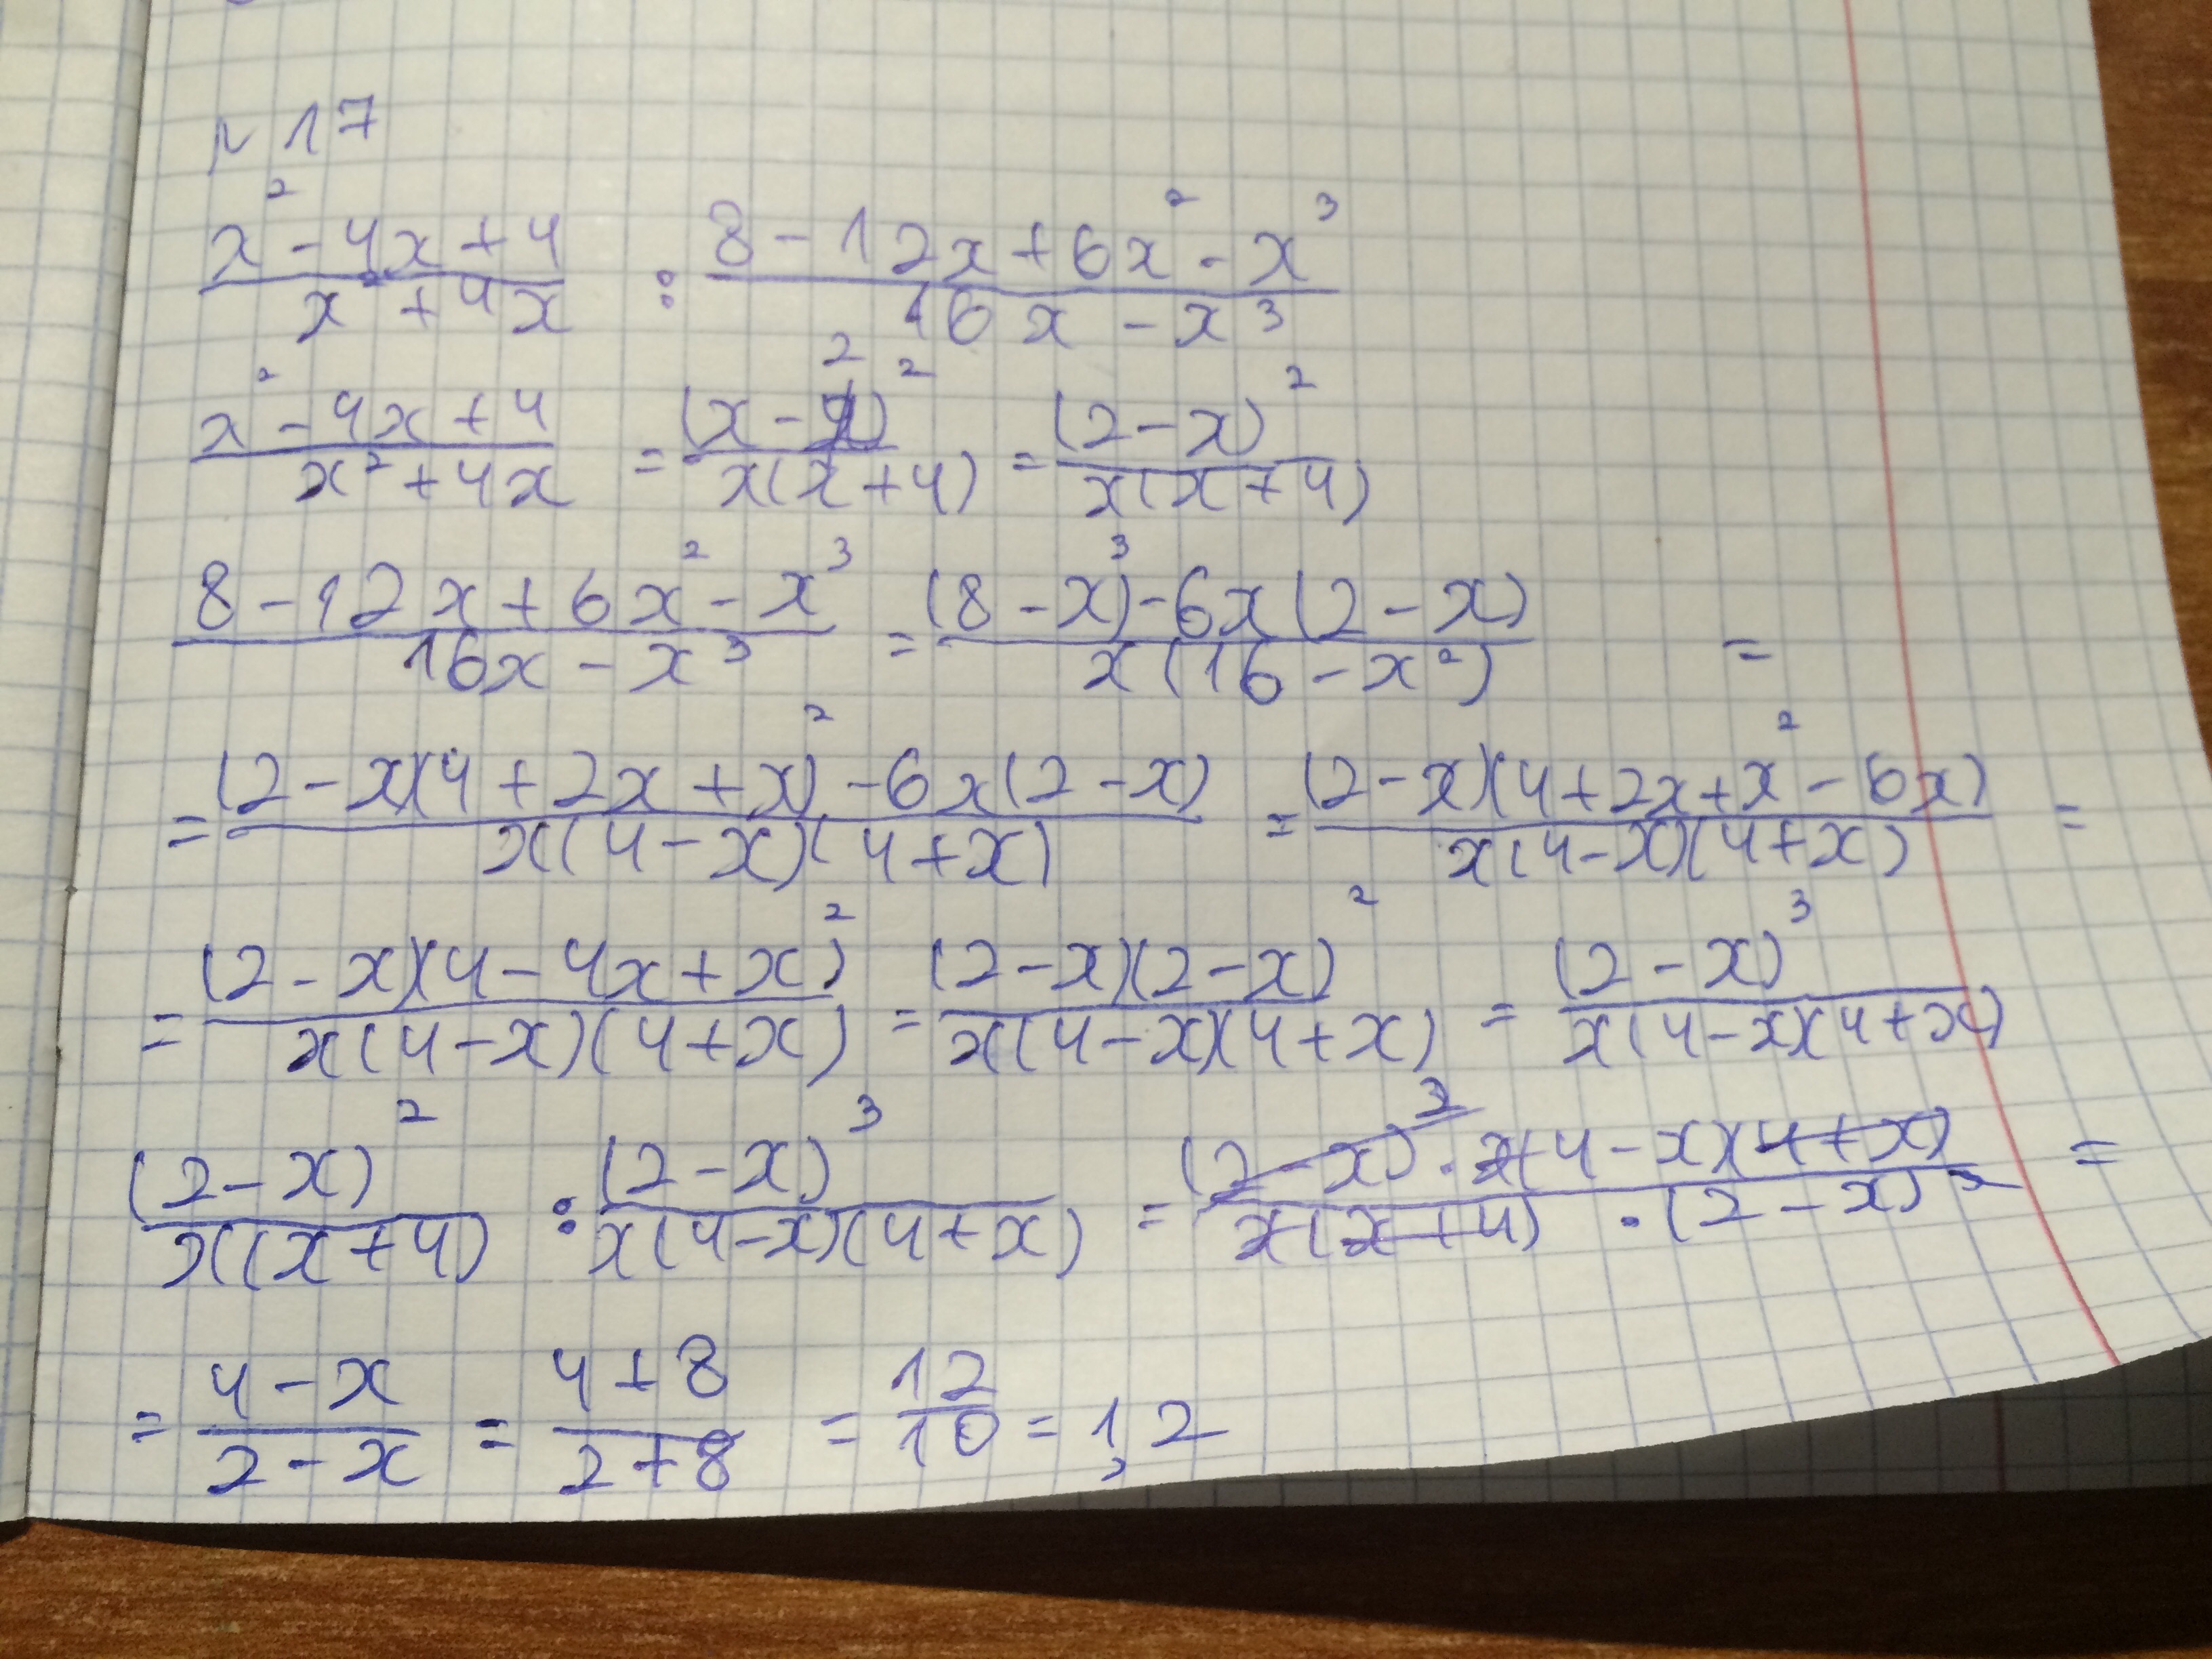 N 17
(x² - 4x + 4)/(x² + 4x) : (8 - 12x + 6x² - x³)/(16x - x³)
(x² - 4x + 4)/(x² + 4x) = (x - 2)²/(x(x + 4)) = (2 - x)²/(x(x + 4))
(8 - 12x + 6x² - x³)/(16x - x³) = ((8 - x³) - 6x(2 - x))/(x(16 - x²)) =
= ((2 - x)(4 + 2x + x²) - 6x(2 - x))/(x(4 - x)(4 + x)) = ((2 - x)(4 + 2x + x² - 6x))/(x(4 - x)(4 + x)) =
= ((2 - x)(4 - 4x + x²))/(x(4 - x)(4 + x)) = ((2 - x)(2 - x)²)/(x(4 - x)(4 + x)) = (2 - x)³/(x(4 - x)(4 + x))
(2 - x)²/(x(x + 4)) : (2 - x)³/(x(4 - x)(4 + x)) = ((2 - x)² · x(4 - x)(4 + x))/(x(x + 4) · (2 - x)³) =
= (4 - x)/(2 - x) = (4 + 8)/(2 + 8) = 12/10 = 1,2